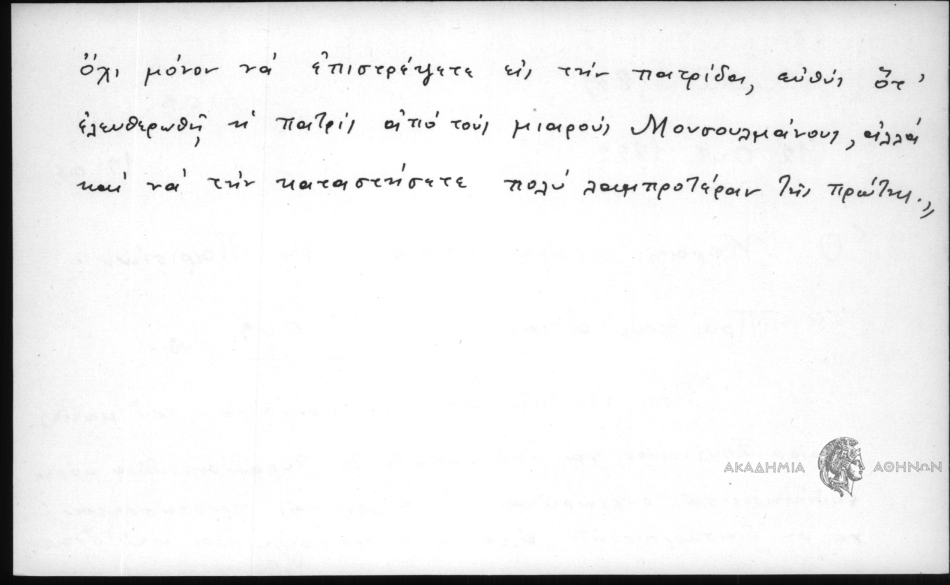 ὄχι μόνον νά ἐπιστρέψετε εἰς τήν πατρίδα, εὐθύς ὅτ'
ἐλευθερωθῇ ἡ πατρίς ἀπό τούς μιαρούς Μουσουλμάνους, ἀλλά
καί νά τήν καταστήσετε πολύ λαμπροτέραν τῆς πρώτης.„
ΑΚΑΔΗΜΙΑ ΑΘΗΝΩΝ